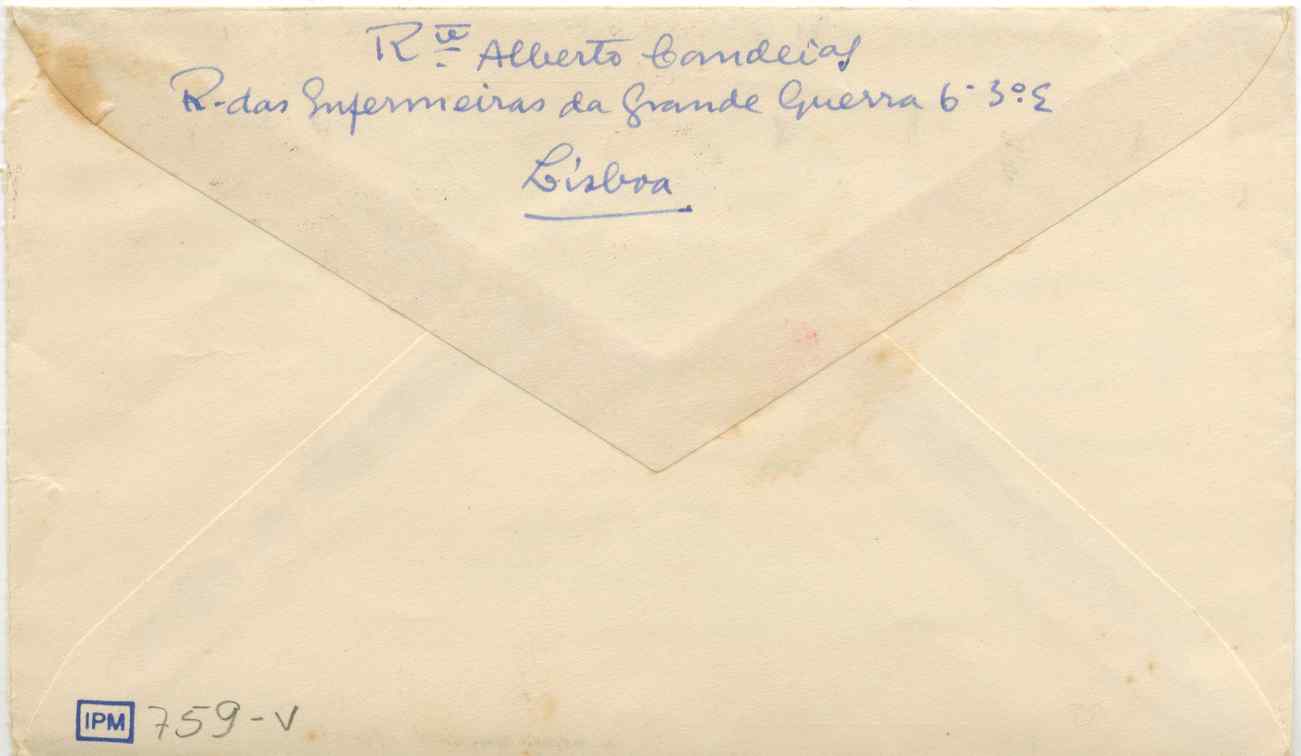 Rte Alberto Candeias
R. das Enfermeiras da Grande Guerra 6-3º E
Lisboa
IPM 759-V